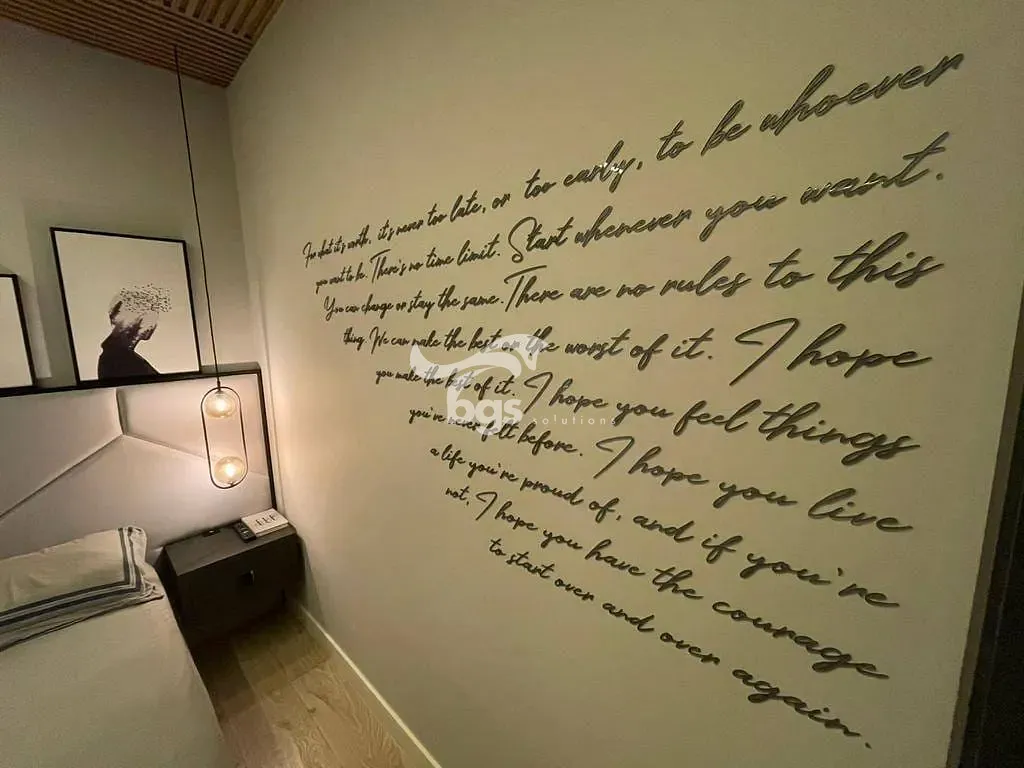 For what it's worth, it's never too late, or too early, to be whoever
you want to be. There's no time limit. Start whenever you want.
You can change or stay the same. There are no rules to this
thing. We can make the best or the worst of it. I hope
you make the best of it. I hope you feel things
you've never felt before. I hope you live
a life you're proud of, and if you're
not, I hope you have the courage
to start over and over again.
bgs
solutions